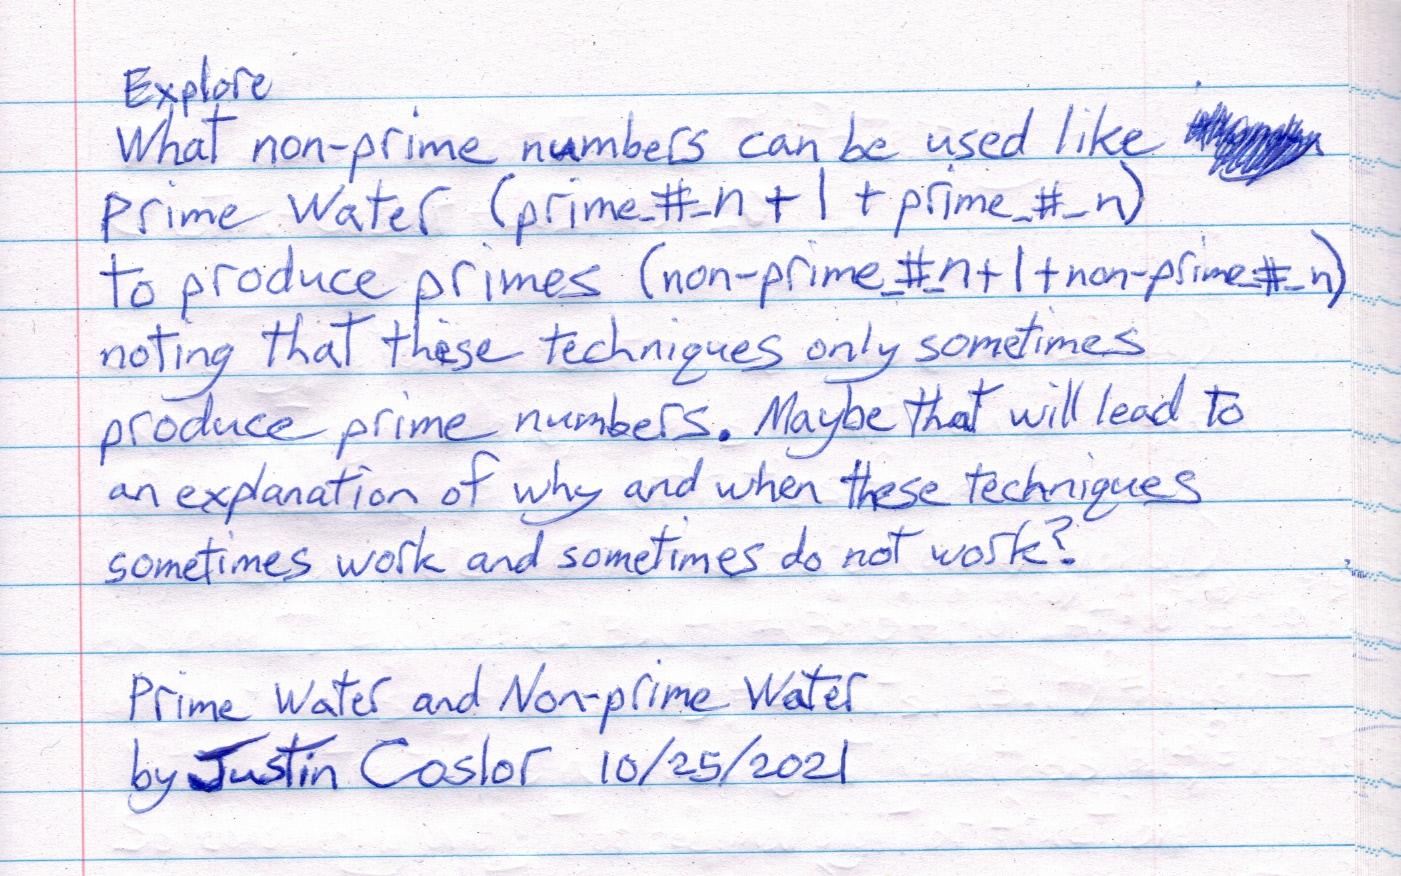 Explore
What non-prime numbers can be used like
Prime Water (prime_#_n + 1 + prime_#_n)
to produce primes (non-prime_#_n+1+non-prime_#_n)
noting that these techniques only sometimes
produce prime numbers. Maybe that will lead to
an explanation of why and when these techniques
sometimes work and sometimes do not work?
Prime Water and Non-prime Water
by Justin Coslor 10/25/2021